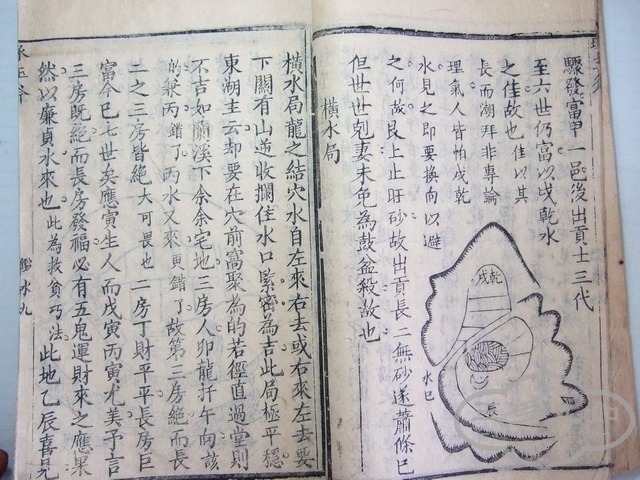 驟發富甲一邑後出貢士三代
至六世仍富以戌乾水
之佳故也佳以其
長而潮拜非專論
理氣人皆怕戌乾
水見之即要換向以避
之何故艮上止旺砂故出貢長二無砂遂蕭條巳
但世世剋妻未免為鼓盆殺故也
橫水局
乾戌
水巳
長
橫水局龍之結穴水自左來右去或右來左去要
下關有山逆收攔住水口緊密為吉此局極平穩
東湖主云却要在穴前窩聚為的若徑直過堂則
不吉如蕭溪下余余宅地三房人卯龍扦午向該
的兼丙錯了丙水又來更錯了故第三房絕而長
二之三房皆絕大可畏也二房丁財平平長房巨
富今巳七世矣應寅生人而戊寅丙寅尤美予言
三房既絕而長房發福必有五鬼運財來之應果
然以廉貞水來也此為救貧巧法此地乙辰喜兄
水九